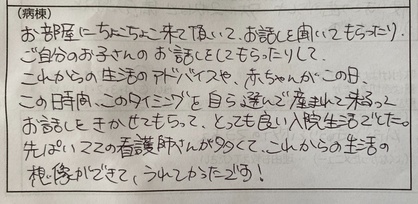 (病棟)
お部屋にちょこちょこ来て頂いて、お話しを聞いてもらったり、
ご自分のお子さんのお話しをしてもらったりして、
これからの生活のアドバイスや、赤ちゃんがこの日、
この時間、このタイミングを自ら選んで産まれて来るって
お話しをきかせてもらって、とっても良い入院生活でした。
先ぱいママの看護師さんが多くて、これからの生活の
想像ができて、うれしかったです!